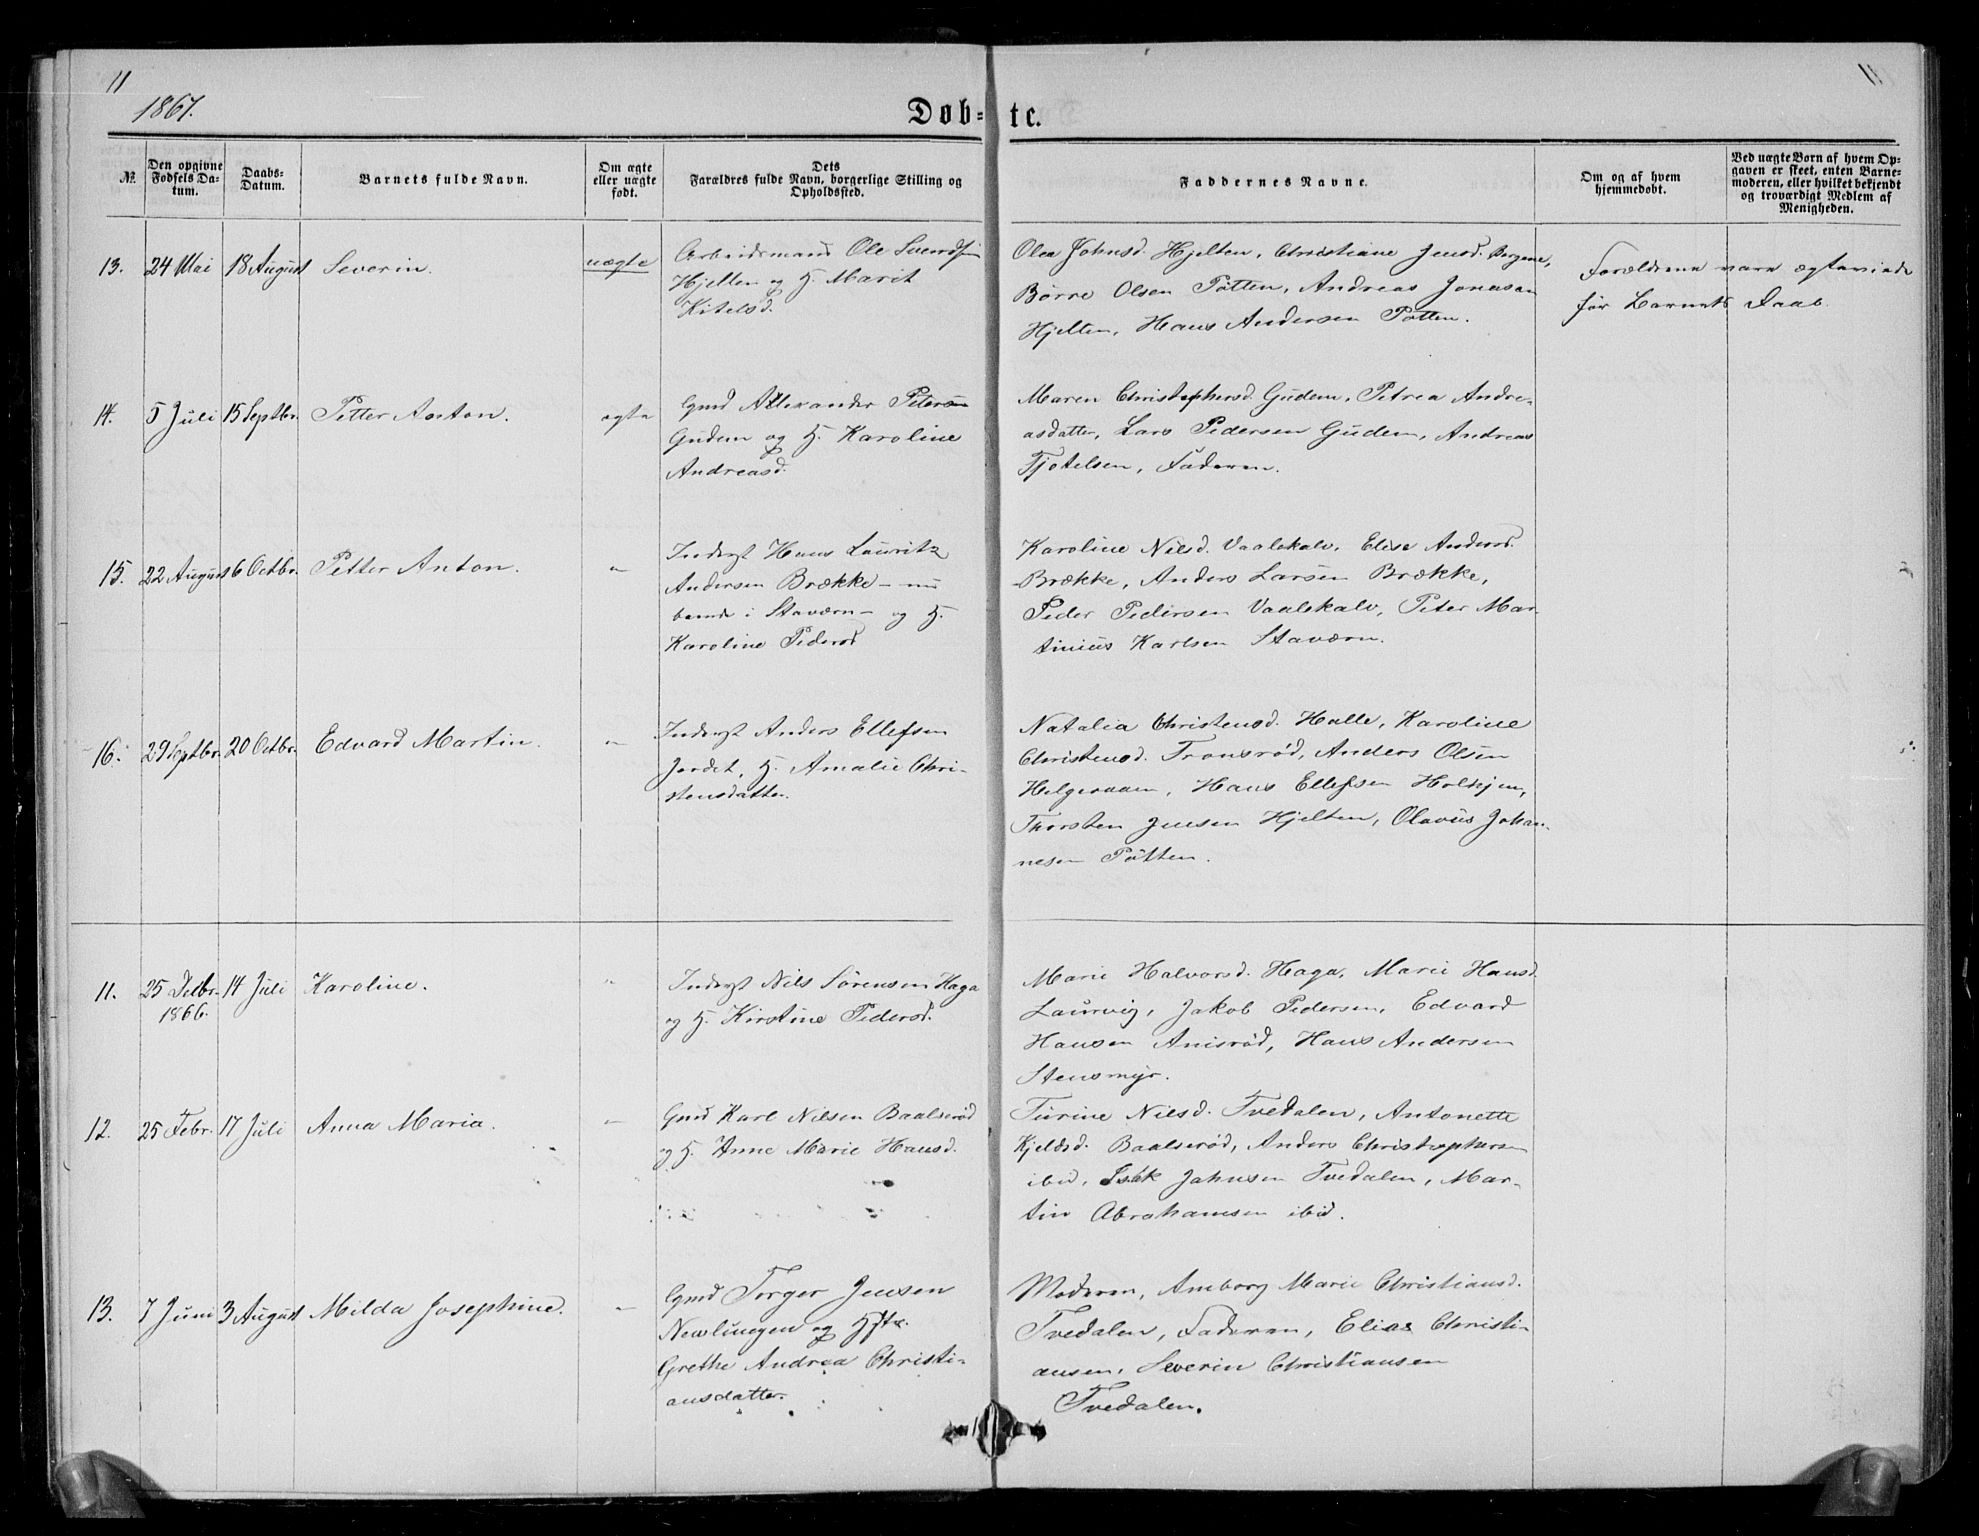 11
11
1867.
Døb-te.
№.
Den opgivne Fødsels Da-tum.
Daabs-Datum.
Barnets fulde Navn.
Om ægte eller uægte født.
Dets Forældres fulde Navn, borgerlige Stilling og Opholdssted.
Faddernes Navne.
Om og af hvem hjemmedøbt.
Ved uægte Børn af hvem Op-gaven er skeet, enten Barne-moderen, eller hvilket bekjendt og troværdigt Medlem af Menigheden.
13. 24 Mai 18 August Severin. uægte
Arbeidsmand Ole Svendsen
Hjelten og H. Marit
Kitelsd.
Olea Johnsd. Hjelten, Christiane Jensd.
Børre Olsen Påtten, Andreas Jonasen
Hjelten, Hans Andersen Påtten.
Forældrene vare ægteviede
før Barnets Daab.
14. 5 Juli 15 Septbr. Petter Anton. ægte
Gmd Allexander Petersen
Gudem og H. Karoline
Andreasd.
Maren Christophersd. Gudem, Petrea Andre-
asdatter, Lars Pedersen Gudem, Andreas
Tjøtelsen, Faderen.
15. 22 August 6 Octbr. Petter Anton. "
Inderst Hans Lauritz
Andersen Brække – nu
boende i Staværn – og H.
Karoline Pedersd
Karoline Nilsd. Vaalekalv, Elise Andersd.
Brække, Anders Larsen Brække,
Peder Pedersen Vaalekalv, Peter Mar-
tinius Karlsen Staværn.
16. 29 Septbr. 20 Octbr. Edvard Martin. "
Inderst Anders Ellefsen
Jordet, H. Amalie Chri-
stensdatter.
Natalia Christensd. Halle, Karoline
Christensd. Tronsrød, Anders Olsen
Helgeraaen, Hans Ellefsen Holhjem,
Thorsten Jensen Hjelten, Olavus Johan-
nesen Påtten.
11. 25 Decbr. 1866. 14 Juli Karoline. "
Inderst Nils Sørensen Haga
og H. Kirstine Pedersd.
Marie Halvorsd. Haga, Marie Hansd.
Laurvig, Jakob Pedersen, Edvard
Hansen Anisrød, Hans Andersen
Stensmyr.
12. 25 Febr. 17 Juli Anna Maria. "
Gmd Karl Nilsen Baalsrød
og H. Anne Marie Hansd.
Turine Nilsd. Tvedalen, Antonette
Kjeldsd. Baalserød, Anders Christophersen
ibid, Isak Johnsen Tvedalen, Mar-
tin Abrahamsen ibid.
13. 7 Juni 3 August Milda Josephine. "
Gmd Torger Jensen
Nevlungen og Hstr.
Grethe Andrea Christi-
ansdatter.
Moderen, Amborg Marie Christiansd.
Tvedalen, Faderen, Elias Christi-
ansen, Severin Christiansen
Tvedalen.